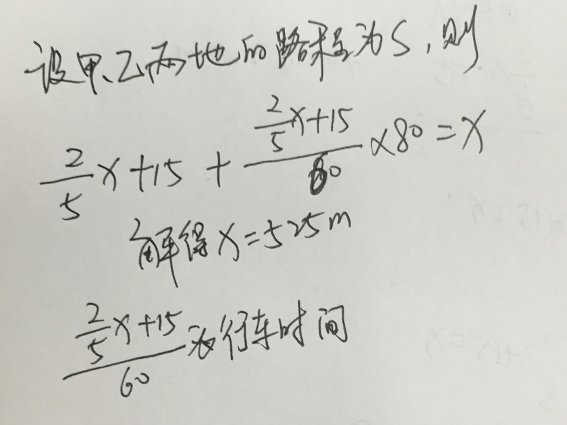 设甲、乙两地的路程为S,则
2/5 x+15 + (2/5 x+15)/60 ×80=x
解得x=525m
(2/5 x+15)/60 为行车时间